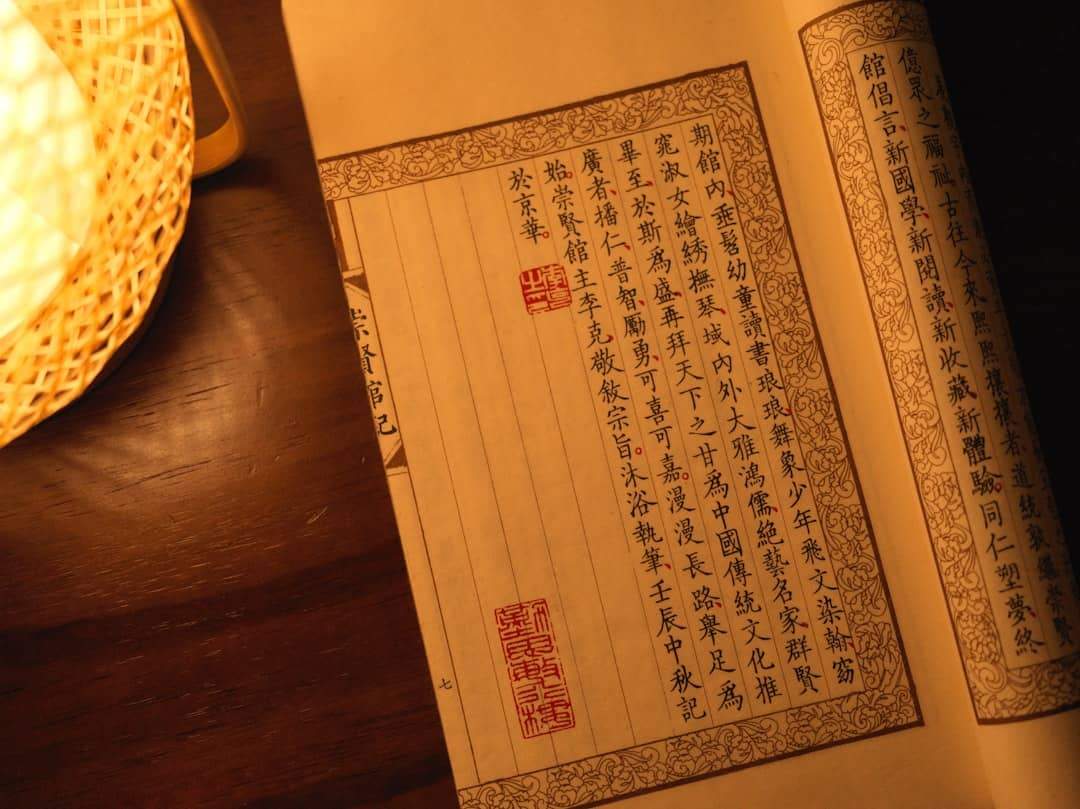 億眾之福祉古往今來熙熙攘攘者道統繼崇賢
館倡言、新國學、新閱讀、新收藏、新體驗。同仁塑夢、終
期館內、垂髫幼童讀書琅琅、舞象少年飛文染翰、窈
窕淑女繪綉撫琴、域內外大雅鴻儒、絕藝名家、群賢
畢至、於斯爲盛、再拜天下之甘爲中國傳統文化推
廣者、播仁、普智、勵勇、可喜可嘉。漫漫長路、舉足爲
始。崇賢館主李克、敬敘宗旨。沐浴執筆、壬辰中秋記
於京華。
崇賢館記
七